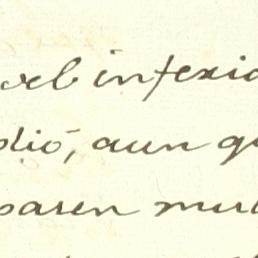 vel inferio
dió, aun q
paren mu